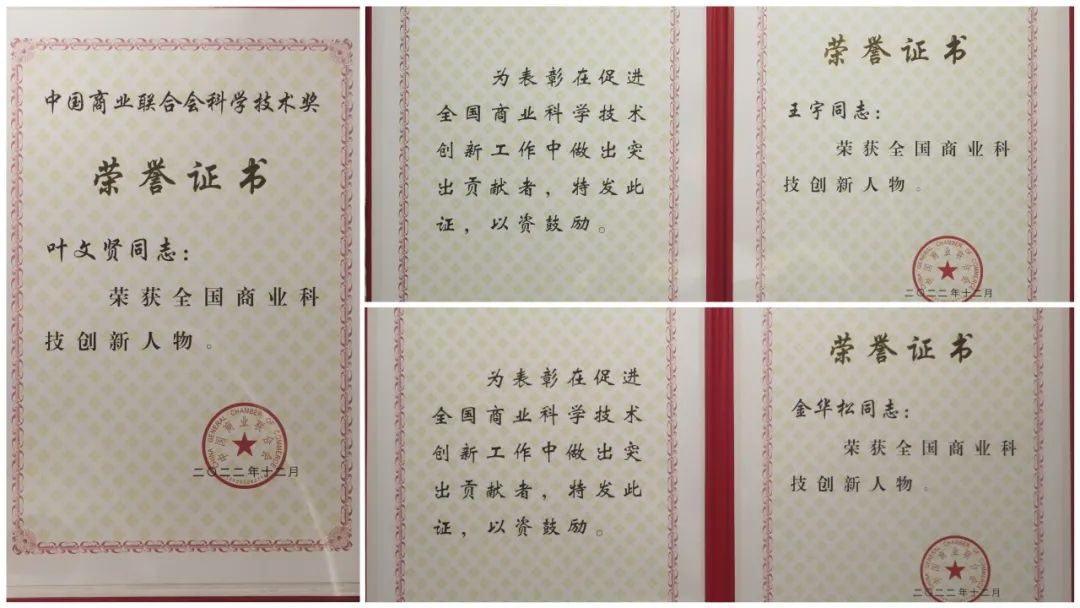 中国商业联合会科学技术奖
荣誉证书
叶文贤同志：
荣获全国商业科
技创新人物。
CHINA GENERAL CHAMBER OF COMMERCE
中国商业联合会
二〇二二年十二月
为表彰在促进
全国商业科学技术
创新工作中做出突
出贡献者，特发此
证，以资鼓励。
荣誉证书
王宇同志：
荣获全国商业科
技创新人物。
CHINA GENERAL CHAMBER OF COMMERCE
中国商业联合会
二〇二二年十二月
为表彰在促进
全国商业科学技术
创新工作中做出突
出贡献者，特发此
证，以资鼓励。
荣誉证书
金华松同志：
荣获全国商业科
技创新人物。
CHINA GENERAL CHAMBER OF COMMERCE
中国商业联合会
二〇二二年十二月